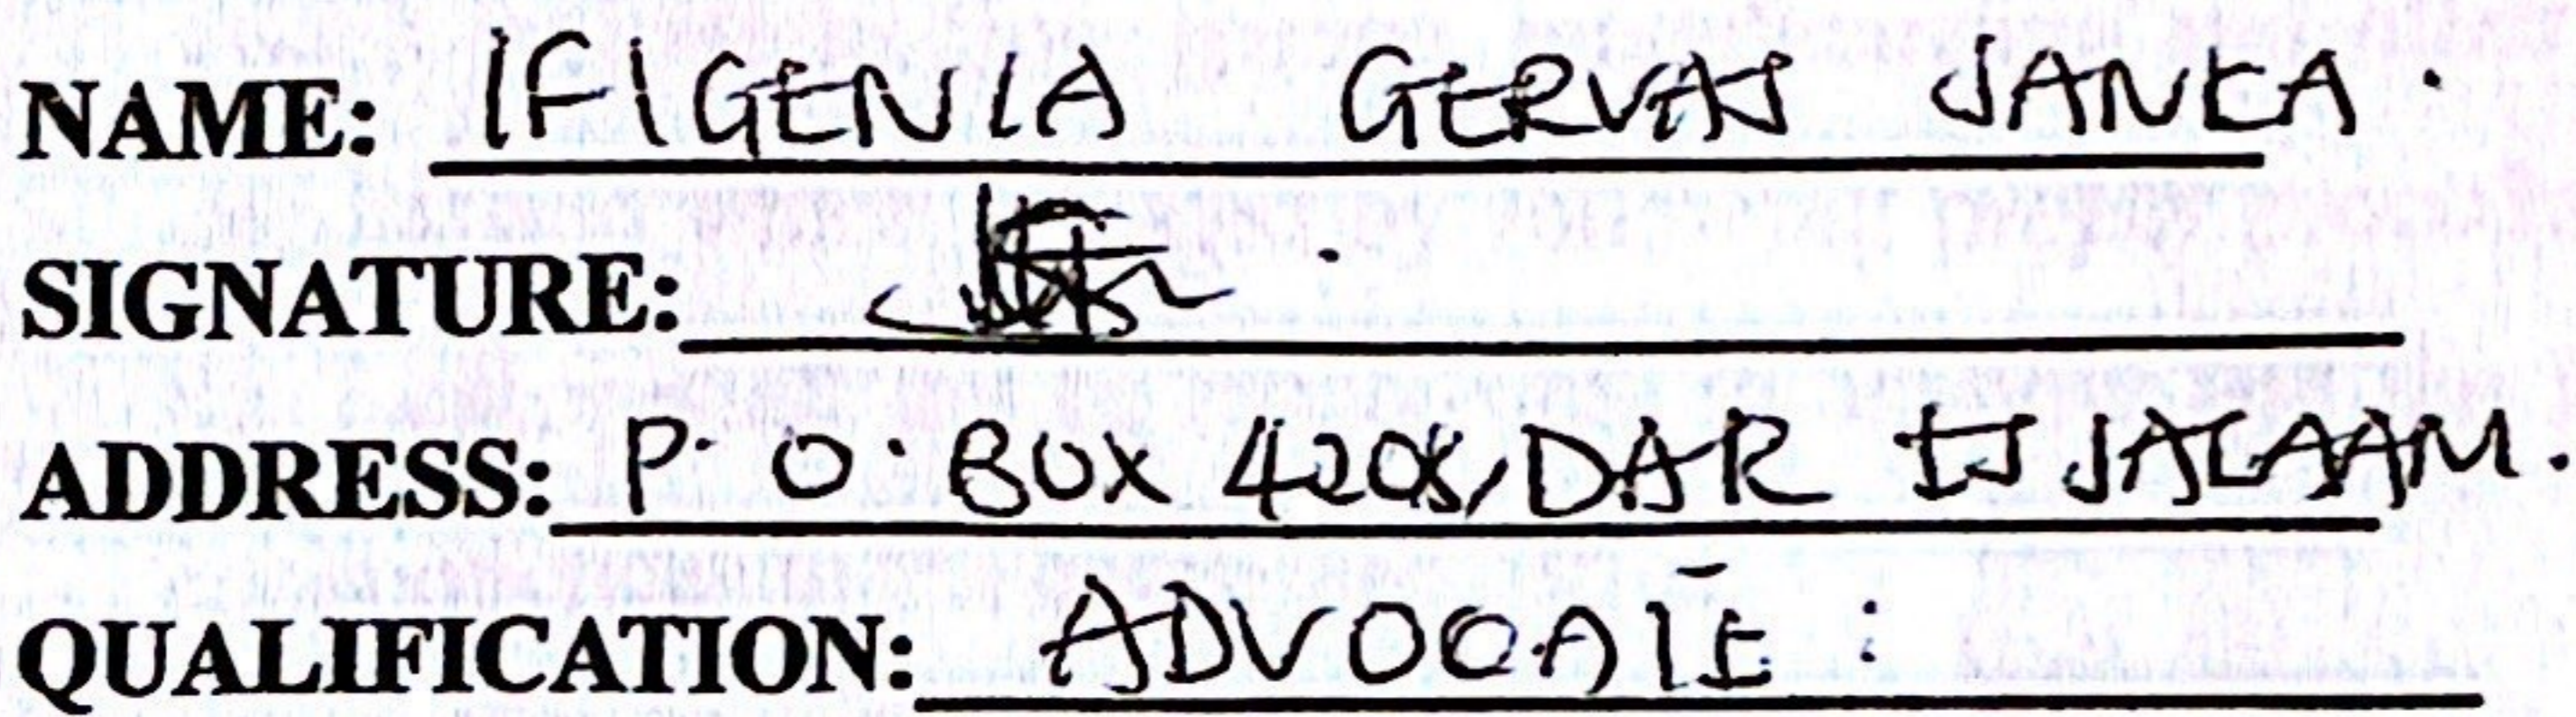 NAME: IFIGENIA GERVAS SANKA.
SIGNATURE:
ADDRESS: P. O. BOX 4208, DAR ES SALAAM.
QUALIFICATION: ADVOCATE :